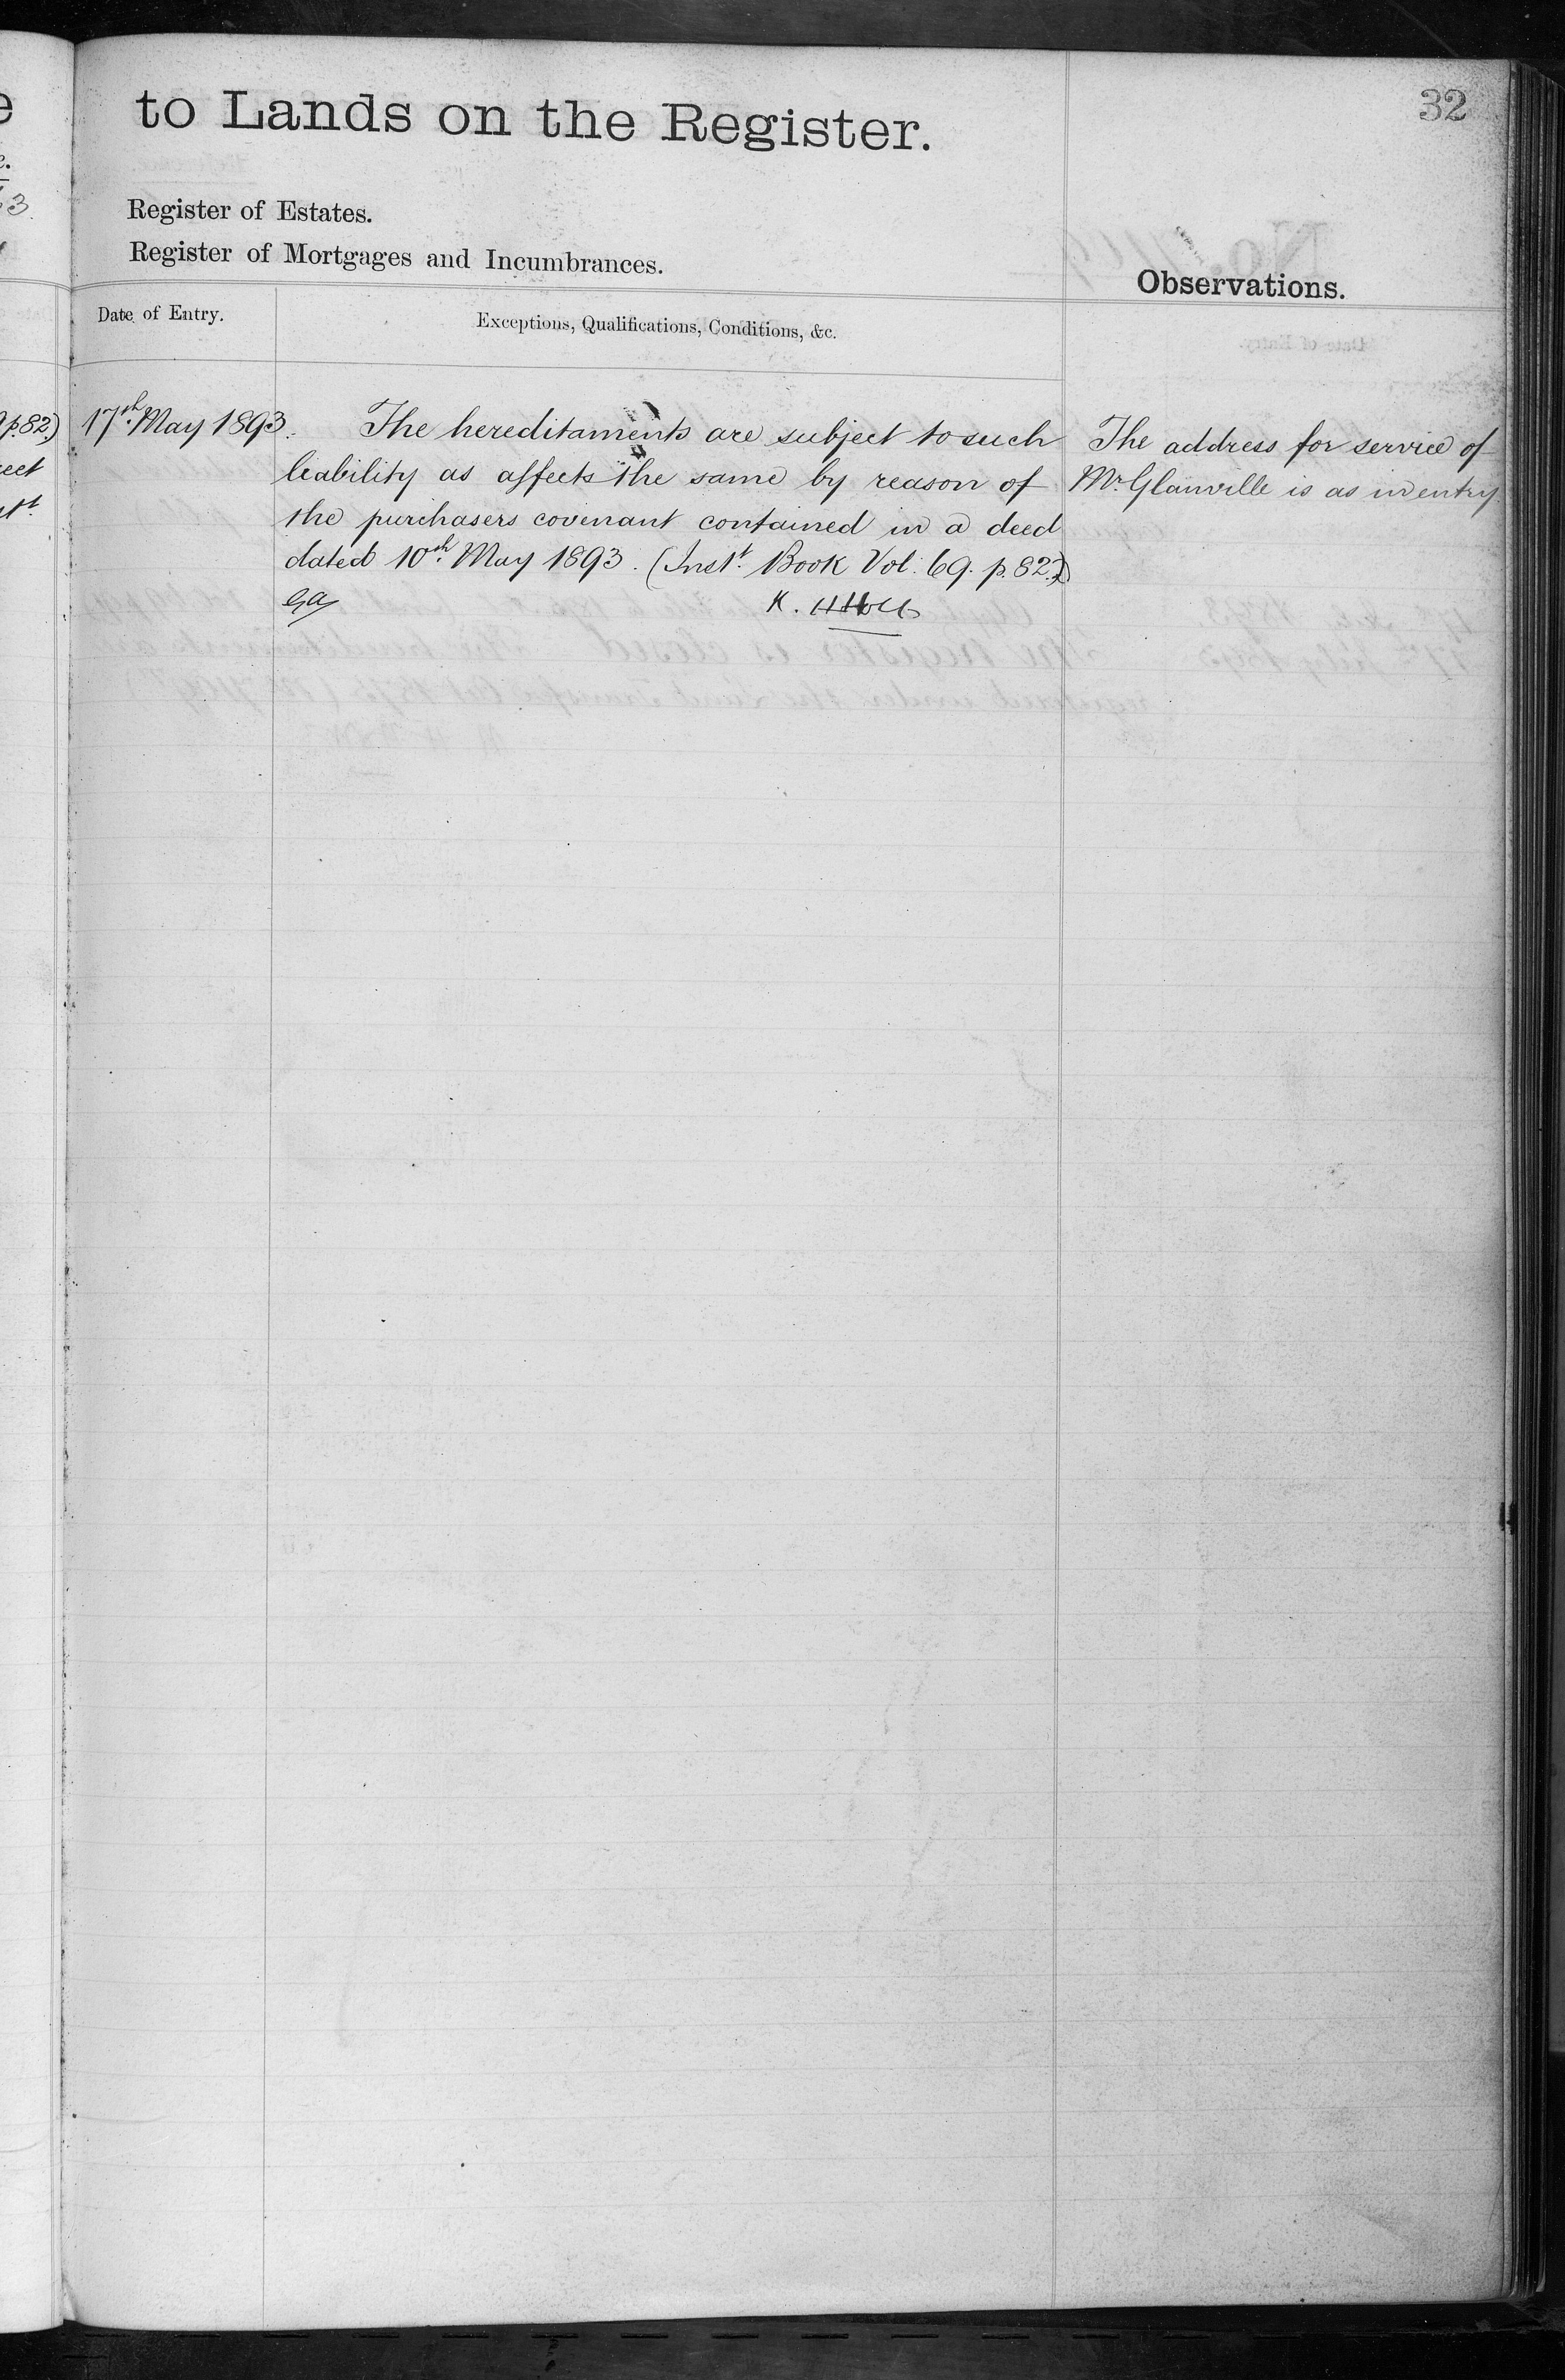 32
to Lands on the Register.
Register of Estates.
Register of Mortgages and Incumbrances.
Observations.
Date of Entry.
Exceptions, Qualifications, Conditions, &c.
p.82)
17th May 1893.
The hereditaments are subject to such
liability as affects the same by reason of
the purchasers covenant contained in a deed
dated 10th May 1893. (Inst. Book Vol. 69. p. 82.)
The address for service of
Mr. Glanville is as in entry